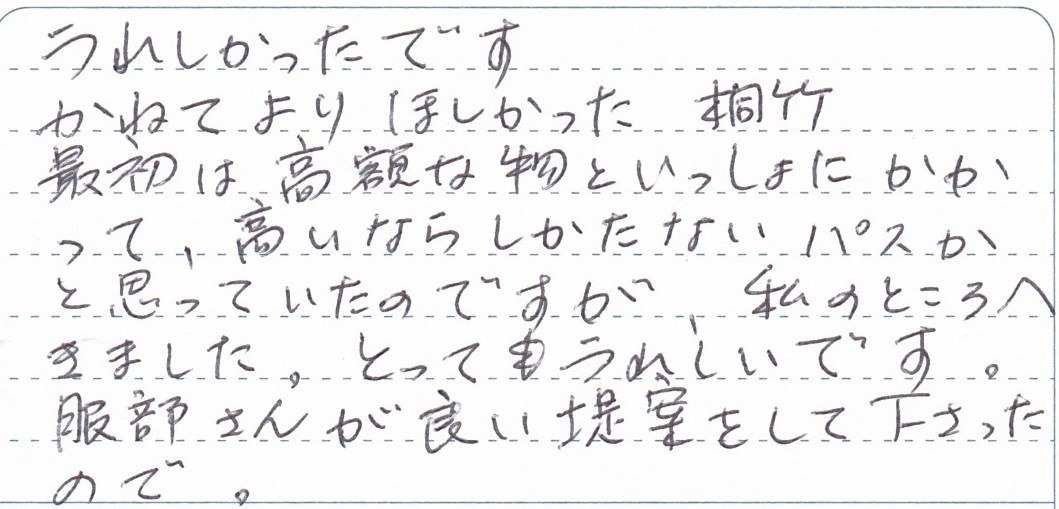 うれしかったです
かねてより ほしかった 桐竹
最初は高額な物といっしょにかか
って、高いならしかたない パスか
と思っていたのですが、私のところへ
きました。とってもうれしいです。
服部さんが良い堤案をして下さった
ので。